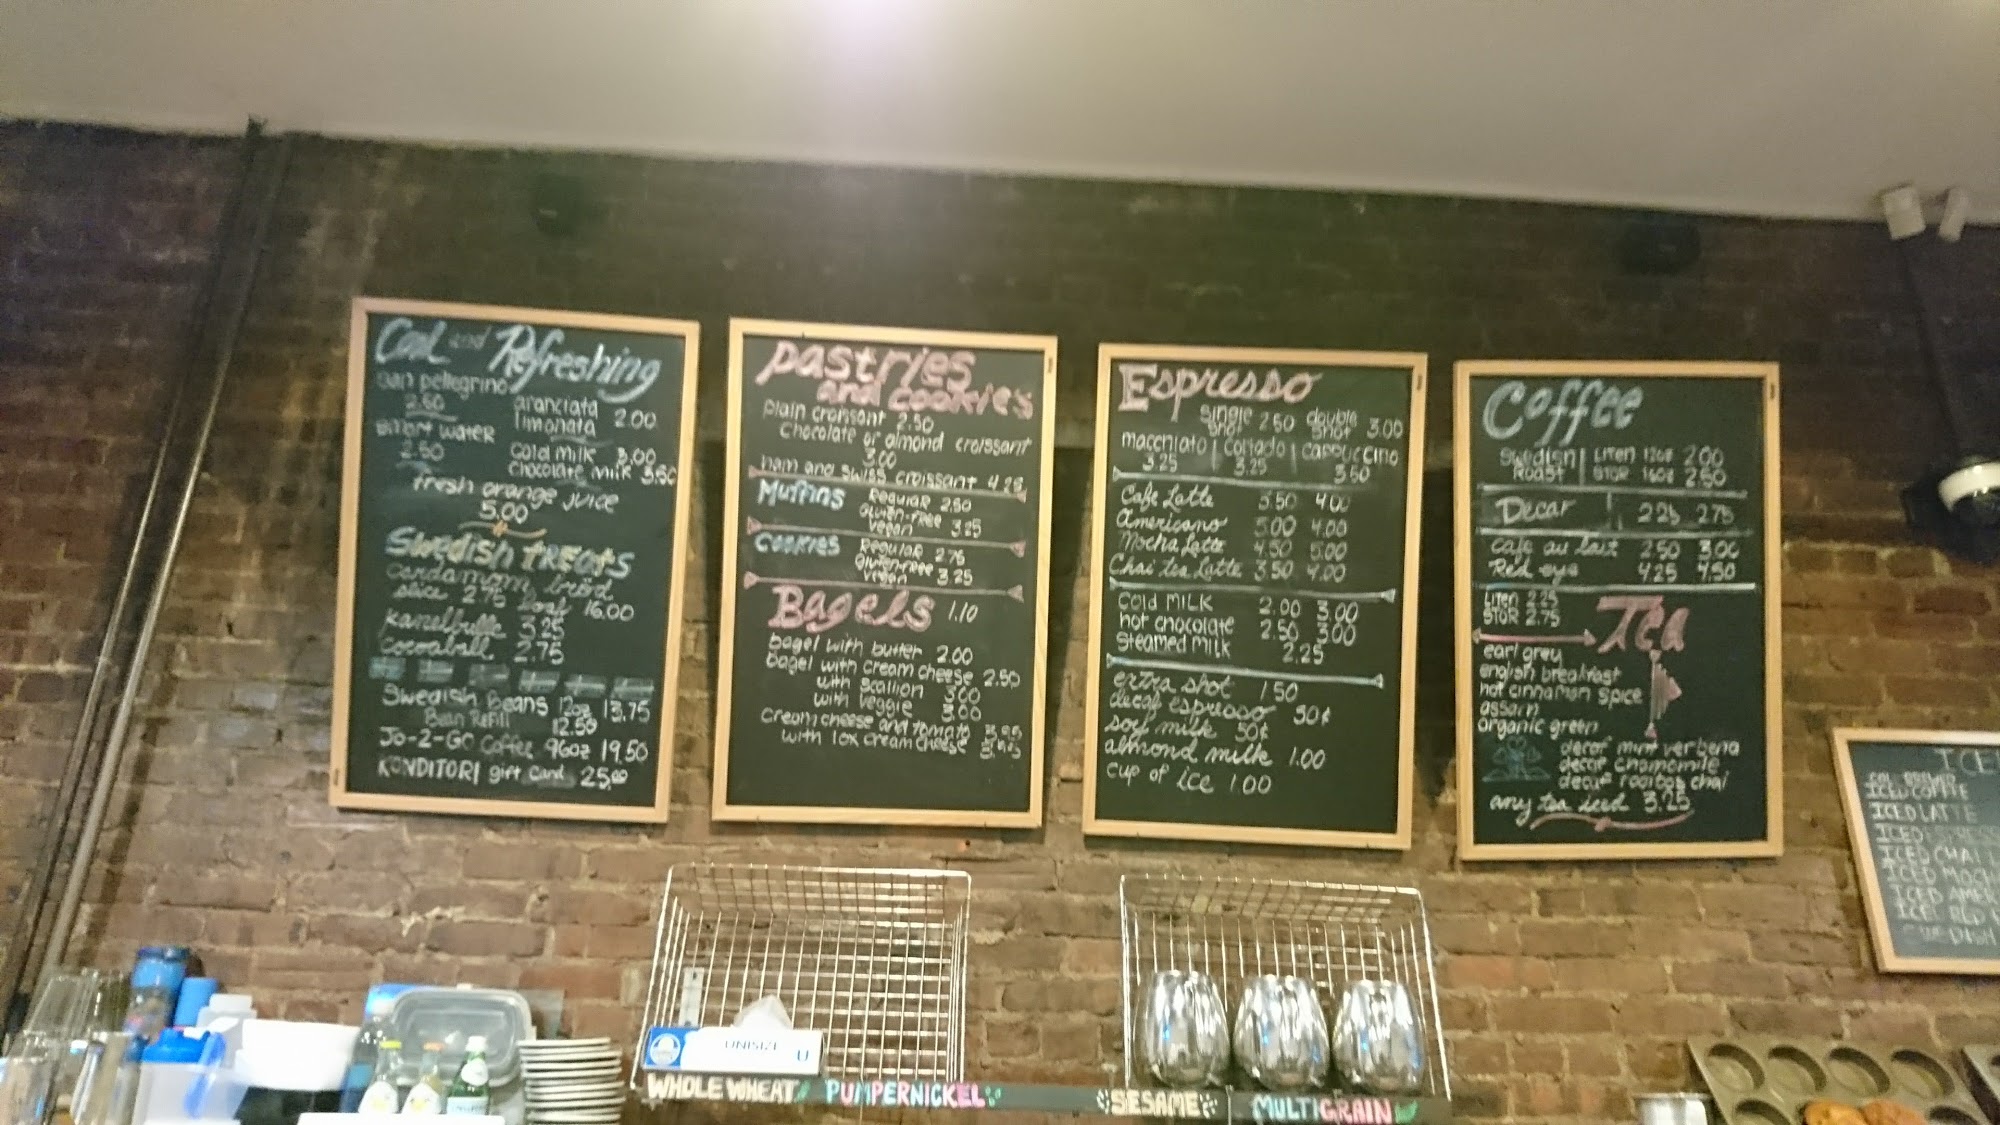 Cool and Refreshing
san pellegrino
2.50
aranciata
limonata 2.00
smart water
2.50
cold milk 3.00
chocolate milk 3.50
fresh orange juice
5.00
Swedish TREATS
cardamom bröd
slice 2.75 loaf 16.00
kanelbulle 3.25
Cocoaball 2.75
Swedish Beans 12oz 13.75
Bean Refill 12.50
Jo-2-GO Coffee 96oz 19.50
KONDITORI gift card 25.00
pastries
and cookies
plain croissant 2.50
Chocolate or almond croissant
3.00
ham and swiss croissant 4.25
Muffins Regular 2.50
Gluten-free
vegan 3.25
COOKIES Regular 2.75
Gluten-free
vegan 3.25
Bagels 1.10
bagel with butter 2.00
bagel with cream cheese 2.50
with scallion 3.00
with veggie 3.00
cream cheese and tomato
with lox cream cheese
Espresso
single shot 2.50 double shot 3.00
macchiato | cortado | cappuccino
3.25 | 3.25 | 3.50
Cafe Latte 3.50 4.00
Americano 3.00 4.00
Mocha Latte 4.50 5.00
Chai tea Latte 3.50 4.00
COLD MILK 2.00 3.00
hot chocolate 2.50 3.00
steamed milk 2.25
extra shot 1.50
decaf espresso 50¢
soy milk 50¢
almond milk 1.00
cup of ice 1.00
Coffee
Swedish | LITEN 12oz 2.00
Roast | STOR 16oz 2.50
Decaf | 2.25 2.75
Cafe au lait 2.50 3.00
Red eye 4.25 4.50
LITEN 2.25
STOR 2.75
Tea
earl grey
english breakfast
hot cinnamon spice
assam
organic green
decaf mint verbena
decaf chamomile
decaf rooibos chai
any tea iced 3.25
ICED
COLD BREWED
ICED COFFEE
ICED LATTE
ICED ESPRESSO
ICED CHAI
ICED MOCHA
ICED AMER
ICED RED
SWEDISH
UNISIZE U
WHOLE WHEAT
PUMPERNICKEL
SESAME
MULTIGRAIN